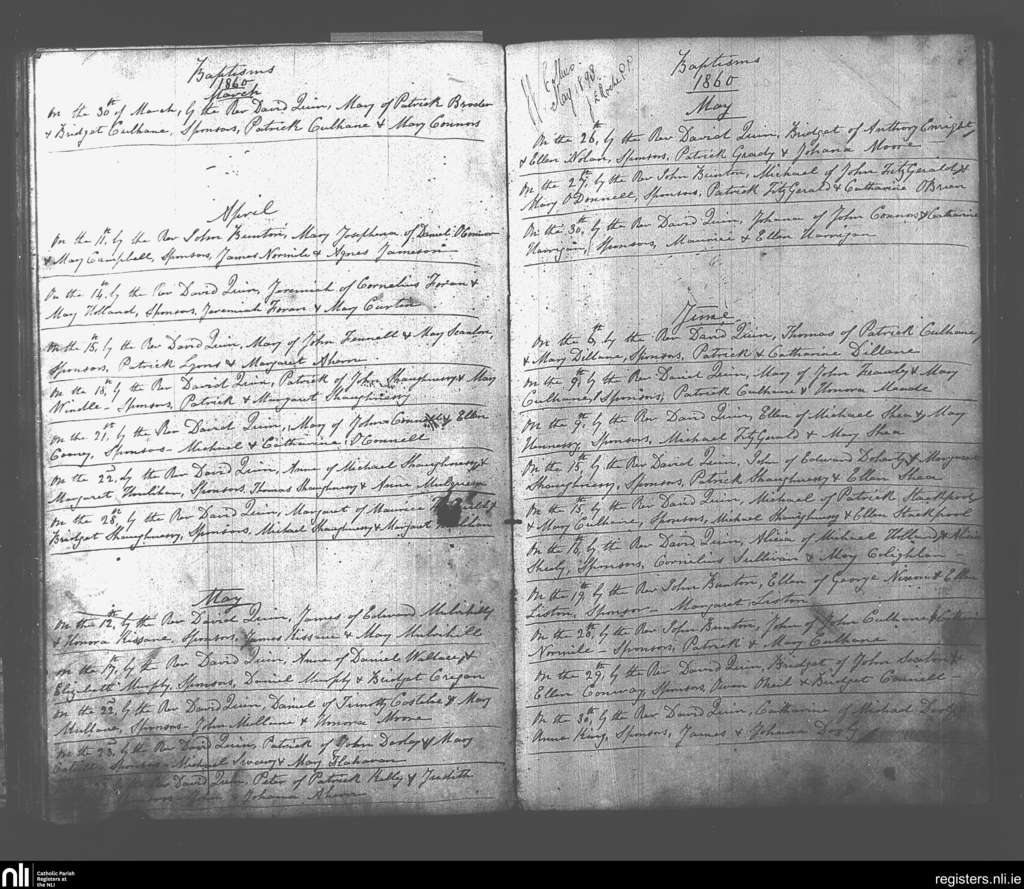 Baptisms
1860
March
On the 30th of March, by the Rev David Quin, Mary of Patrick Broder
& Bridget Culhane, Sponsors, Patrick Culhane & Mary Connors
April
On the 11th, by the Rev John Bunton, Mary Josephine of Daniel O'Connor
& Mary Campbell, Sponsors, James Normile & Agnes Jameson
On the 14th, by the Rev David Quin, Jeremiah of Cornelius Foran &
Mary Holland, Sponsors, Jeremiah Foran & Mary Curtin
On the 15th, by the Rev David Quin, Mary of John Fennell & Mary Scanlon,
Sponsors, Patrick Lyons & Margaret Ahern
On the 18th, by the Rev David Quin, Patrick of John Shaughnessy & Mary
Windle - Sponsors, Patrick & Margaret Shaughnessy
On the 21st, by the Rev David Quin, Mary of John & Ellen
Sponsors - Michael & Catharine O'Connell
On the 22nd, by the Rev David Quin, Anne of Michael Shaughnessy &
Margaret Houlihan, Sponsors, Thomas Shaughnessy & Anne
On the 28th, by the Rev David Quin, Margaret of Maurice
Bridget Shaughnessy, Sponsors, Michael Shaughnessy & Margaret
May
On the 12th, by the Rev David Quin, James of Edmund Mulvihill
& Honora Kissane, Sponsors, James Kissane & Mary Mulvihill
On the 17th, by the Rev David Quin, Anne of Daniel Wallace &
Elizabeth Murphy, Sponsors, Daniel Murphy & Bridget Cregan
On the 22nd, by the Rev David Quin, Daniel of Timothy Costeloe & Mary
Mullane, Sponsors - John Mullane & Honora Moore
On the 23, by the Rev David Quin, Patrick of John & Mary
Sponsors - Michael & Mary Flahavan
Rev David Quin, Peter of Patrick Kelly & Judith
Sponsors John & Johanna Ahern
May 1898
Baptisms
1860
May
On the 26th, by the Rev David Quin, Bridget of Anthony Enright
& Ellen Nolan, Sponsors, Patrick Grady & Johana Moore
On the 27th, by the Rev John Bunton, Michael of John FitzGerald &
Mary O'Donnell, Sponsors, Patrick FitzGerald & Catharine O'Brien
On the 30th, by the Rev David Quin, Johanna of John Connors & Catharine
Harrigan, Sponsors, Maurice & Ellen Harrigan
June
On the 6th, by the Rev David Quin, Thomas of Patrick Culhane
& Mary Dillane, Sponsors, Patrick & Catharine Dillane
On the 9th, by the Rev David Quin, Mary of John Frawly & Mary
Culhane, Sponsors, Patrick Culhane & Honora Meade
On the 9th, by the Rev David Quin, Ellen of Michael Shea & Mary
Hennessy, Sponsors, Michael FitzGerald & Mary Shea
On the 15th, by the Rev David Quin, John of Edward Doherty & Margaret
Shaughnessy, Sponsors, Patrick Shaughnessy & Ellen Shea
On the 15th, by the Rev David Quin, Michael of Patrick Stackpool
& Mary Culhane, Sponsors, Michael Shaughnessy & Ellen Stackpool
On the 18th, by the Rev David Quin, Alicia of Michael Holland & Alicia
Sheehy, Sponsors, Cornelius Sullivan & Mary
On the 19th, by the Rev John Bunton, Ellen of George Nixon & Ellen
Liston, Sponsor - Margaret Liston
On the 28th, by the Rev John Bunton, John of John Culhane &
Normile - Sponsors, Patrick & Mary Culhane
On the 29th, by the Rev David Quin, Bridget of John &
Ellen Conway, Sponsors, Owen & Bridget Connell
On the 30th, by the Rev David Quin, Catharine of Michael
Anne King, Sponsors, James & Johana
nli
Catholic Parish
Registers at
the NLI
registers.nli.ie